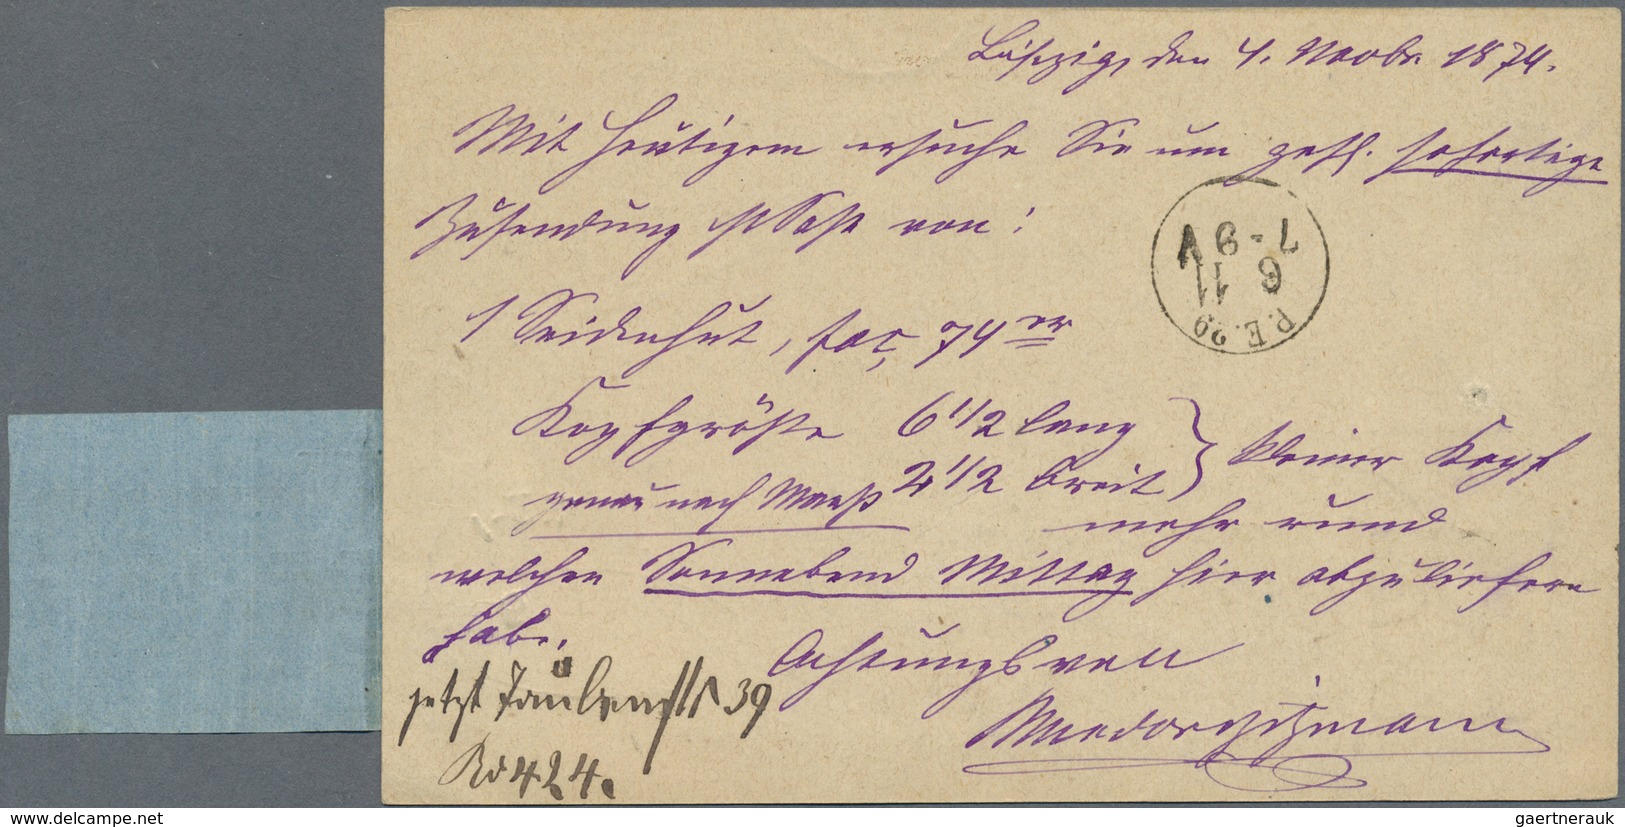 Leipzig, den 4. Novbr. 1874.
Mit Heutigem ersuche Sie um gefl. sofortige
Zusendung von:
1 Seidenhut, faç. 74er
Kopfgröße 6 1/2 lang
genau nach Maaß 2 1/2 breit } kleiner Kopf
mehr rund
welchen Sonnabend Mittag hier abzuliefern
habe.
Achtungsvoll
jetzt Taubenstr 39
No 424.
P.E. 29
6 11
7-9 V
www.philasearch.com
gaertnerauk